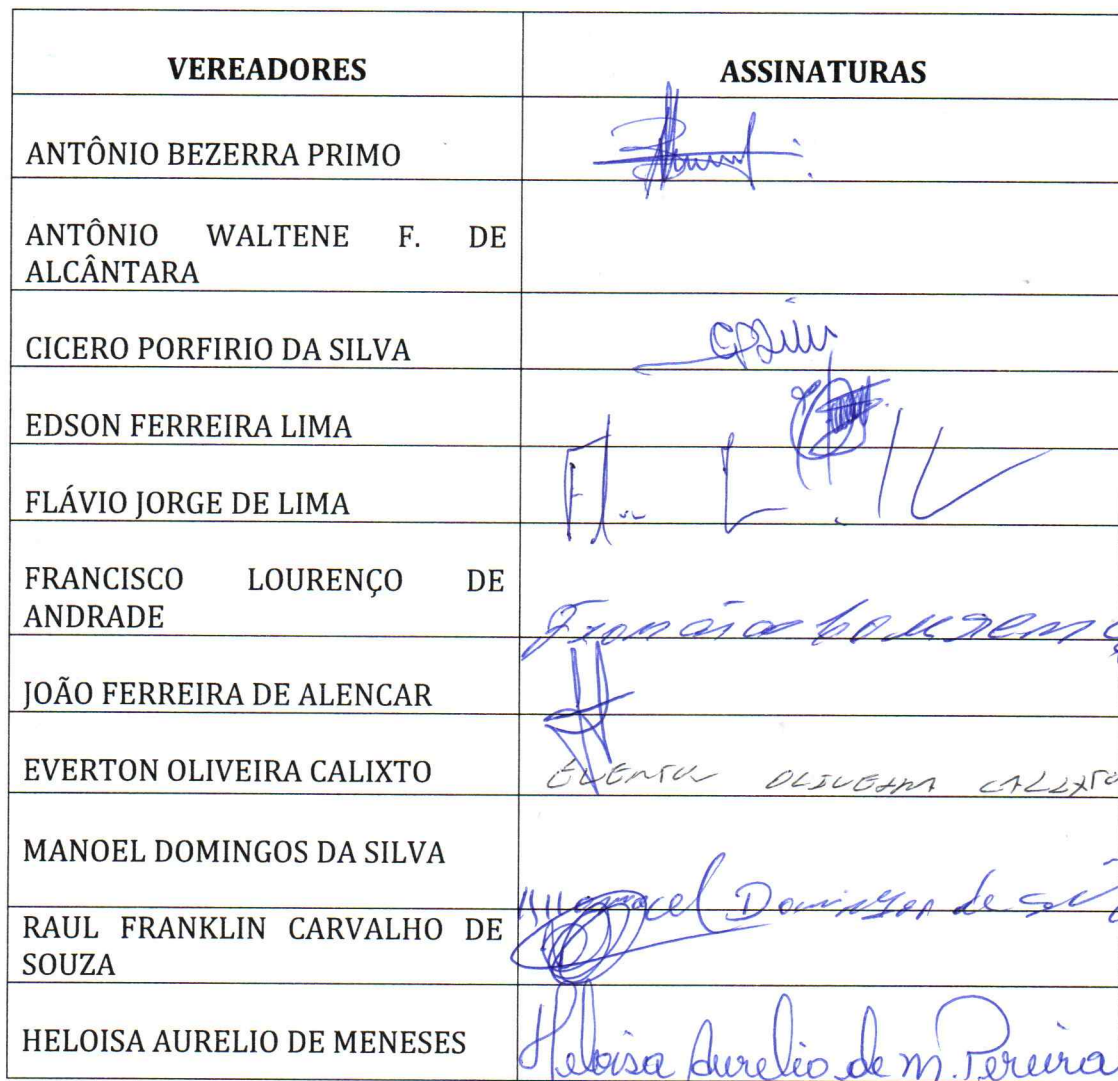 VEREADORES ASSINATURAS
ANTÔNIO BEZERRA PRIMO
ANTÔNIO WALTENE F. DE
ALCÂNTARA
CICERO PORFIRIO DA SILVA
EDSON FERREIRA LIMA
FLÁVIO JORGE DE LIMA
FRANCISCO LOURENÇO DE
ANDRADE
JOÃO FERREIRA DE ALENCAR
EVERTON OLIVEIRA CALIXTO OLIVEIRA CALIXTO
MANOEL DOMINGOS DA SILVA
Manoel Domingos de
RAUL FRANKLIN CARVALHO DE
SOUZA
HELOISA AURELIO DE MENESES Heloisa Aurelio de M. Pereira